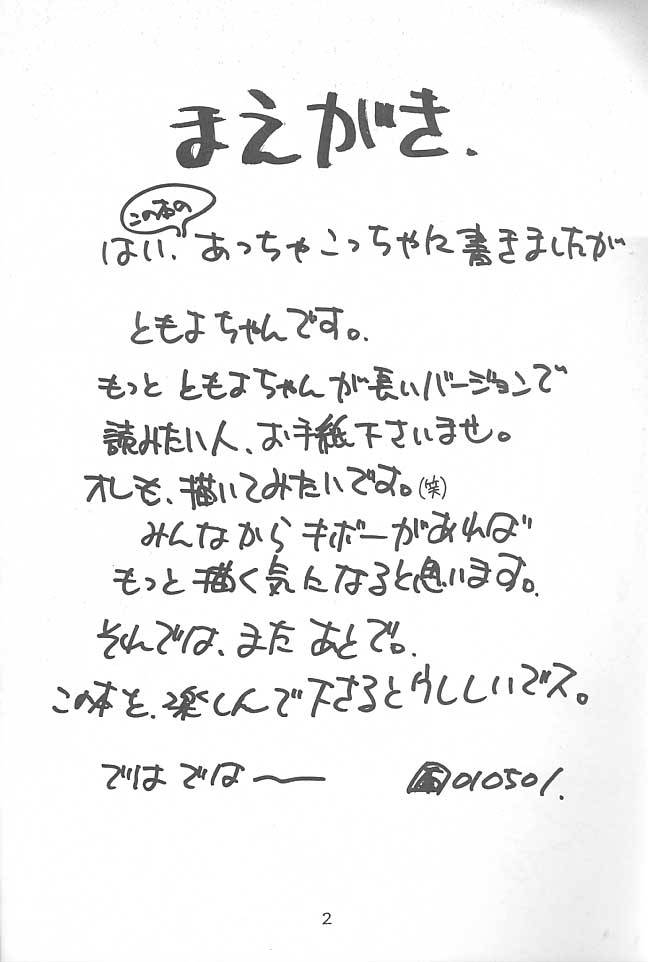 まえがき.
この本の
はい、あっちゃこっちゃに書きましたが
ともよちゃんです。
もっとともよちゃんが長いバージョンで
読みたい人、お手紙下さいませ。
オレも、描いてみたいです。(笑)
みんなからキボーがあれば
もっと描く気になると思います。
それでは、またあとで。
この本を、楽しんで下さるとウレしいでス。
ではでは〜
010501.
2